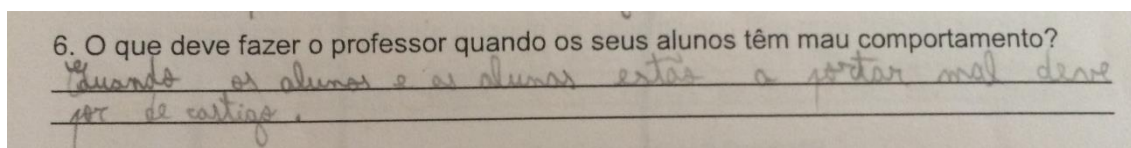 6. O que deve fazer o professor quando os seus alunos têm mau comportamento?
Quando os alunos e as alunas estão a portar mal deve
por de castigo.